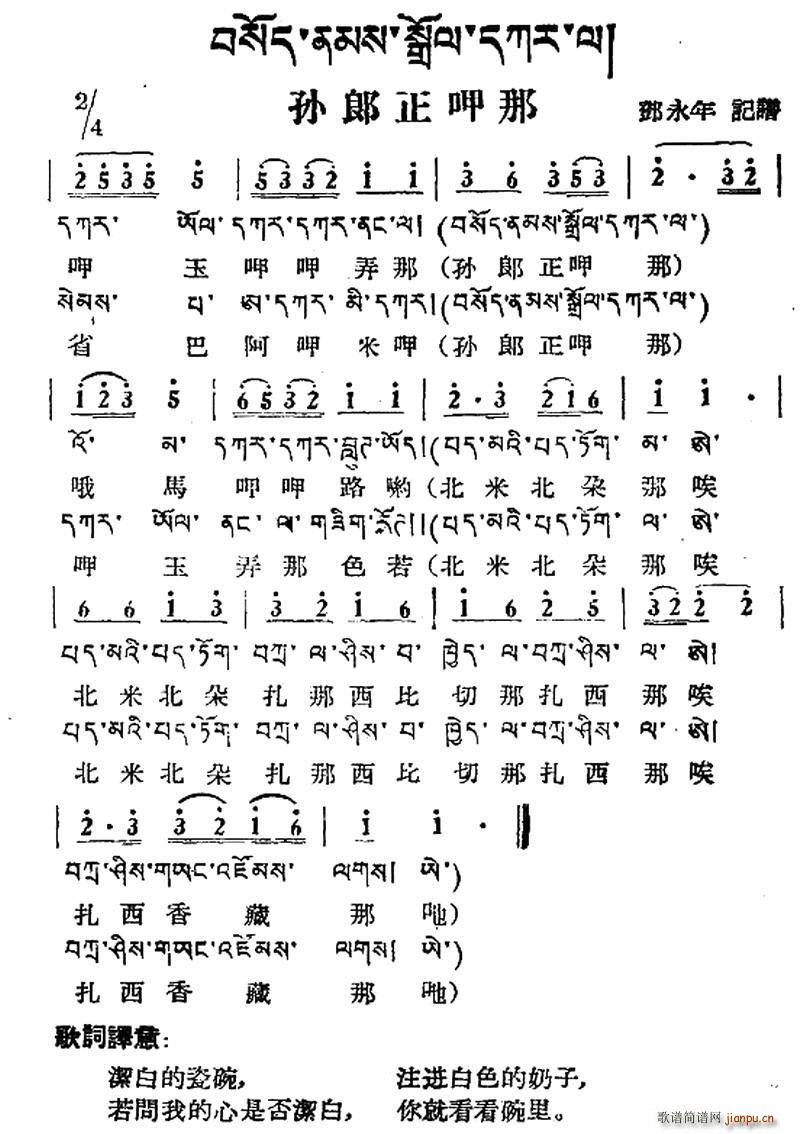 བསོད་ནམས་སྒྲོལ་དཀར་ལ།
孙郎正呷那
2/4
鄧永年 記譜
2 5 3 5 5 | 5 3 3 2 1 1 | 3 6 3 5 3 | 2 · 3 2 |
དཀར་ ཨོལ་དཀར་དཀར་ནང་ལ། (བསོད་ནམས་སྒྲོལ་དཀར་ལ་)
呷 玉 呷 呷 弄 那 (孙 郎 正 呷 那)
སེམས་ པ་ ཨ་དཀར་མི་དཀར། (བསོད་ནམས་སྒྲོལ་དཀར་ལ་)
省 巴 阿 呷 米 呷 (孙 郎 正 呷 那)
1 2 3 5 | 6 5 3 2 1 1 | 2 · 3 2 1 6 | 1 1 · |
འོ་ མ་ དཀར་དཀར་ ཡོད། (པད་མའི་པད་ཏོག་ མ་ ཨེ་
哦 馬 呷 呷 路 喲 (北 米 北 朵 那 唉
དཀར་ ཨོལ་ ནང་ ལ་ གཟིག་ (པད་མའི་པད་ཏོག་ ལ་ ཨེ་
呷 玉 弄 那 色 若 (北 米 北 朵 那 唉
6 6 1 3 | 3 2 1 6 | 1 6 2 5 | 3 2 2 2 |
པད་མའི་པད་ཏོག་ བཀྲ་ ལ་ཤིས་ བ་ ཁྱེད་ ལ་བཀྲ་ཤིས་ ལ་ ཨེ།
北 米 北 朵 扎 那 西 比 切 那 扎 西 那 唉
པད་མའི་པད་ཏོག་ བཀྲ་ ལ་ཤིས་ བ་ ཁྱེད་ ལ་བཀྲ་ཤིས་ ལ་ ཨེ།
北 米 北 朵 扎 那 西 比 切 那 扎 西 那 唉
2 · 3 3 2 1 6 | 1 1 · ‖
བཀྲ་ཤིས་གཡང་འཛོམས་ ལགས། ཨེ་)
扎 西 香 藏 那 吔)
བཀྲ་ཤིས་གཡང་འཛོམས་ ལགས། ཨེ་)
扎 西 香 藏 那 吔)
歌詞譯意:
潔白的瓷碗, 注进白色的奶子,
若問我的心是否潔白, 你就看看碗里。
歌谱简谱网 jianpu.cn